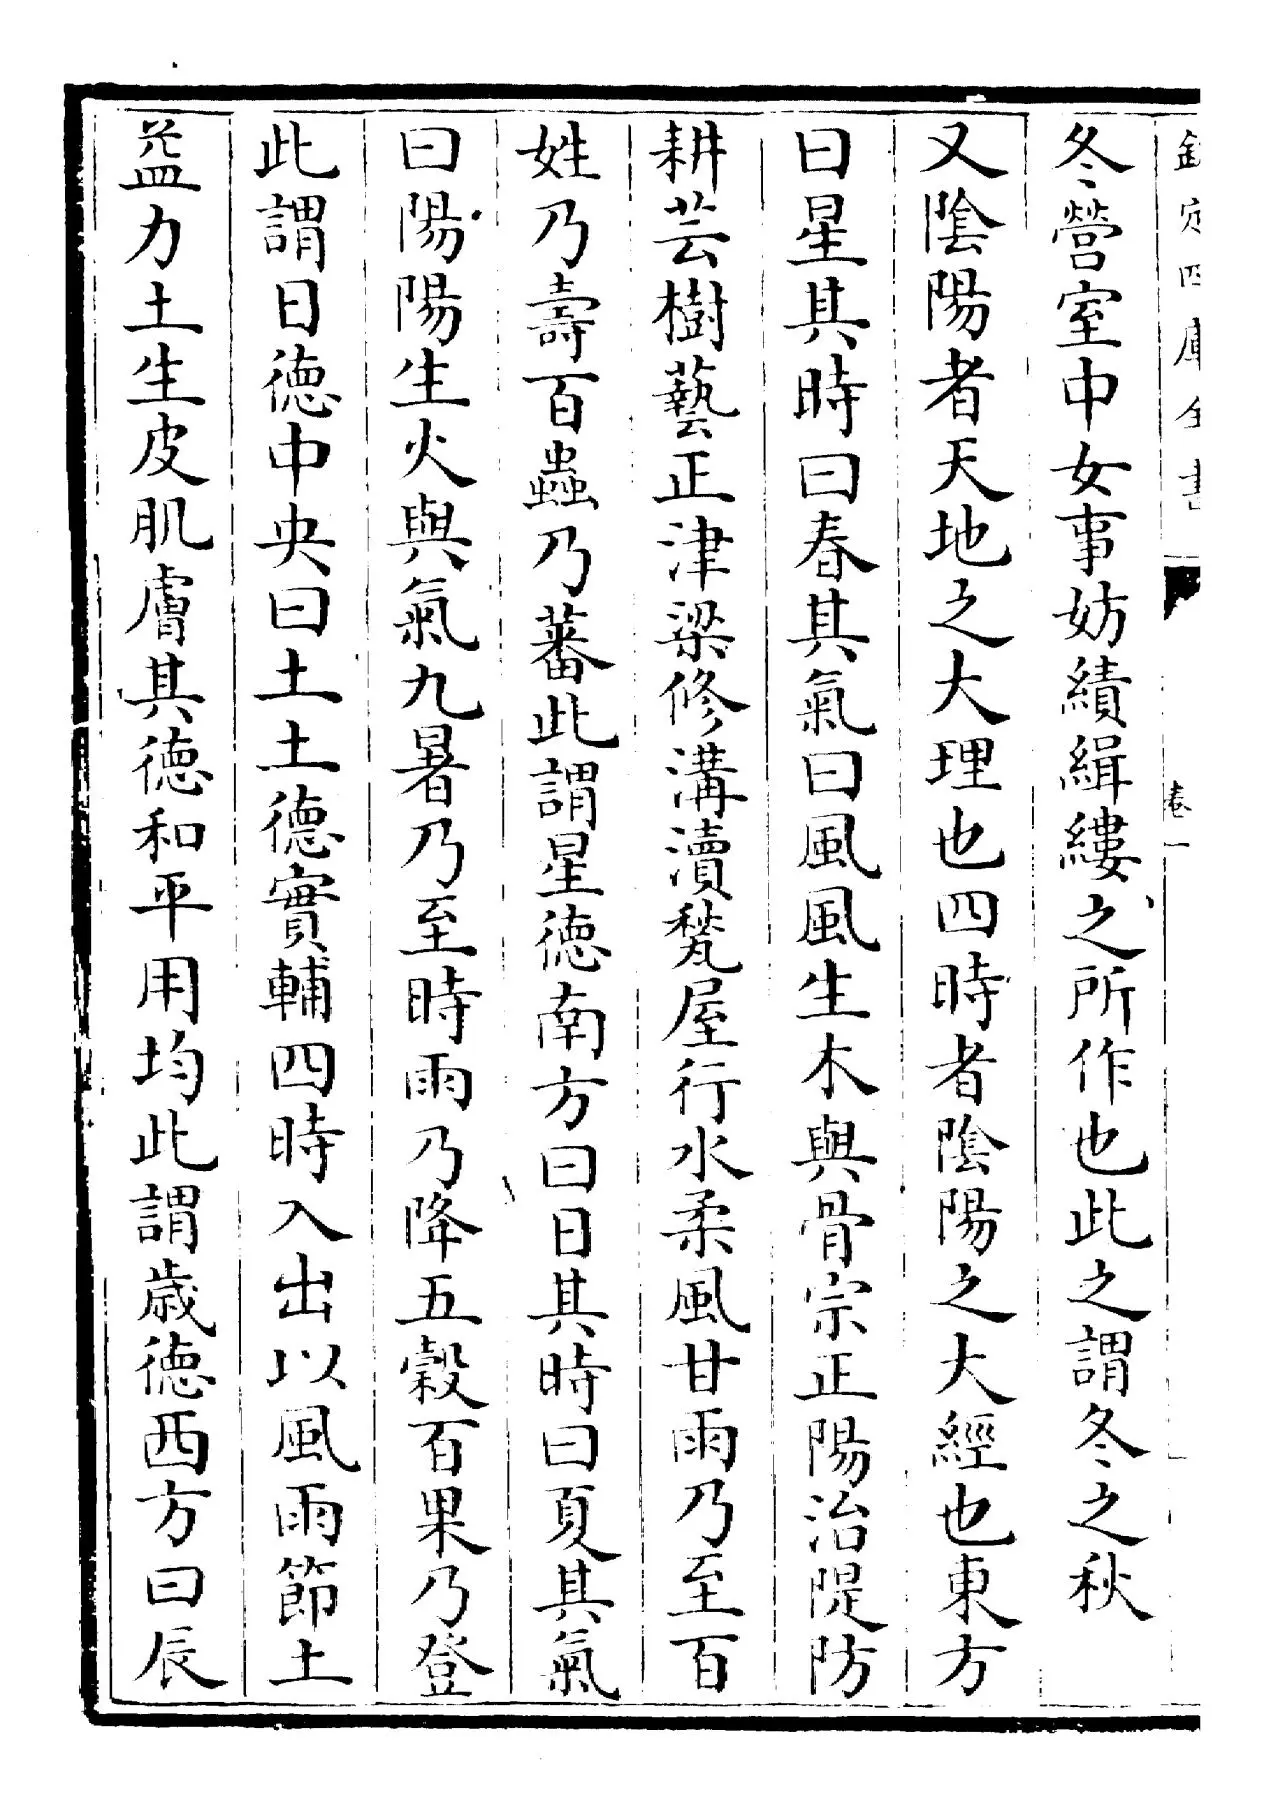 欽定四庫全書
卷一
冬營室中女事妨績緝縷之所作也此之謂冬之秋
又陰陽者天地之大理也四時者陰陽之大經也東方
曰星其時曰春其氣曰風風生木與骨宗正陽治隄防
耕芸樹藝正津梁修溝瀆甃屋行水柔風甘雨乃至百
姓乃壽百蟲乃蕃此謂星徳南方曰日其時曰夏其氣
曰陽陽生火與氣九暑乃至時雨乃降五穀百果乃登
此謂日徳中央曰土土徳實輔四時入出以風雨節土
益力土生皮肌膚其徳和平用均此謂歳徳西方曰辰